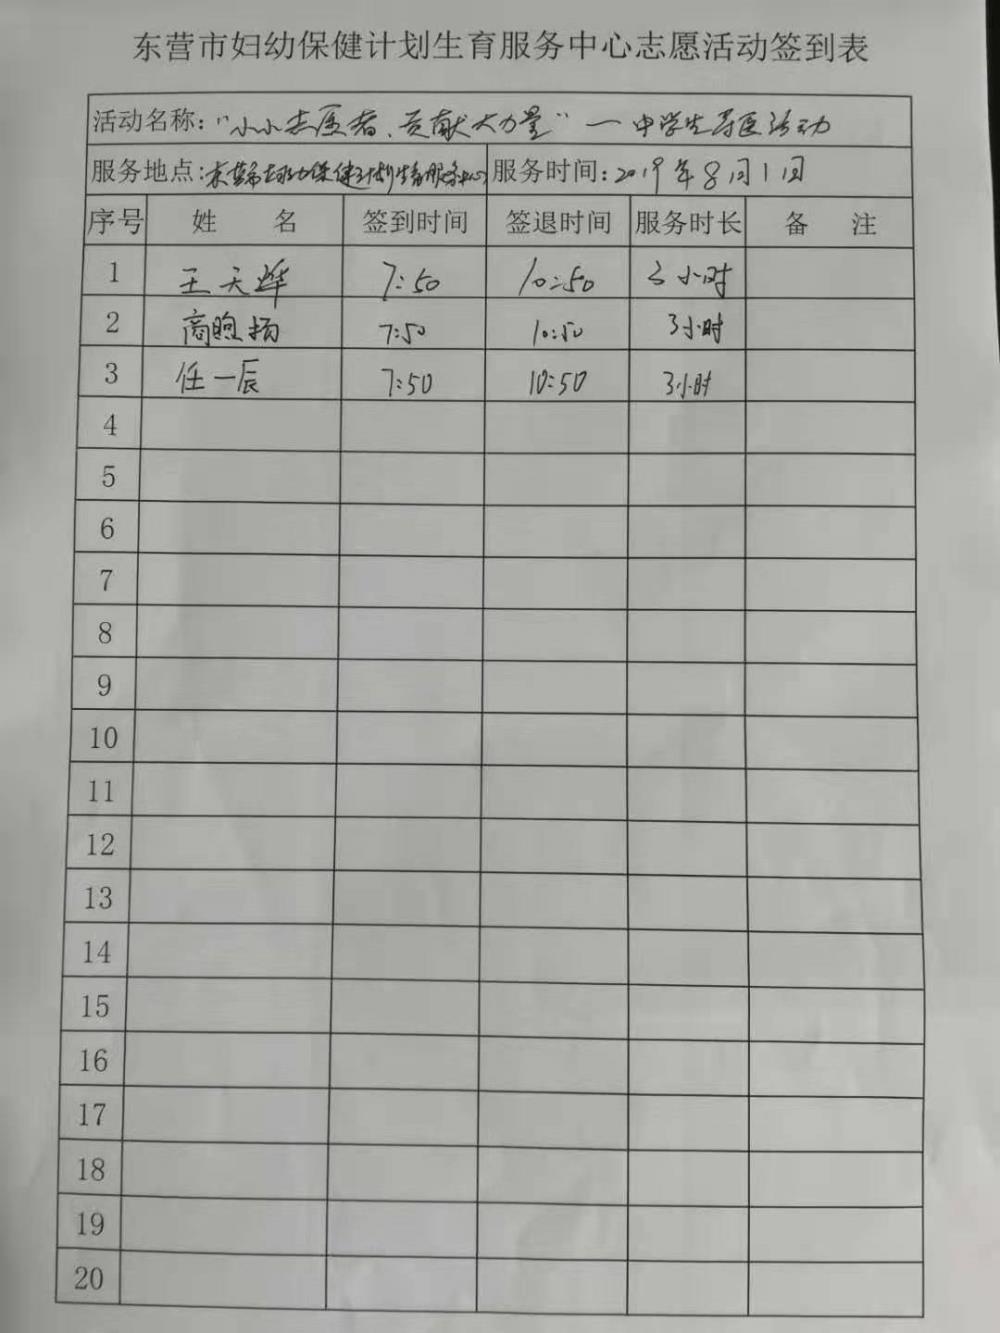 东营市妇幼保健计划生育服务中心志愿活动签到表
活动名称：“小小志愿者、贡献大力量”—中学生导医活动
服务地点：东营市妇幼保健计划生育服务中心 服务时间：2019年8月1日
序号 姓 名 签到时间 签退时间 服务时长 备 注
1 王天烨 7:50 10:50 3小时
2 商煦扬 7:50 10:50 3小时
3 任一辰 7:50 10:50 3小时
4
5
6
7
8
9
10
11
12
13
14
15
16
17
18
19
20